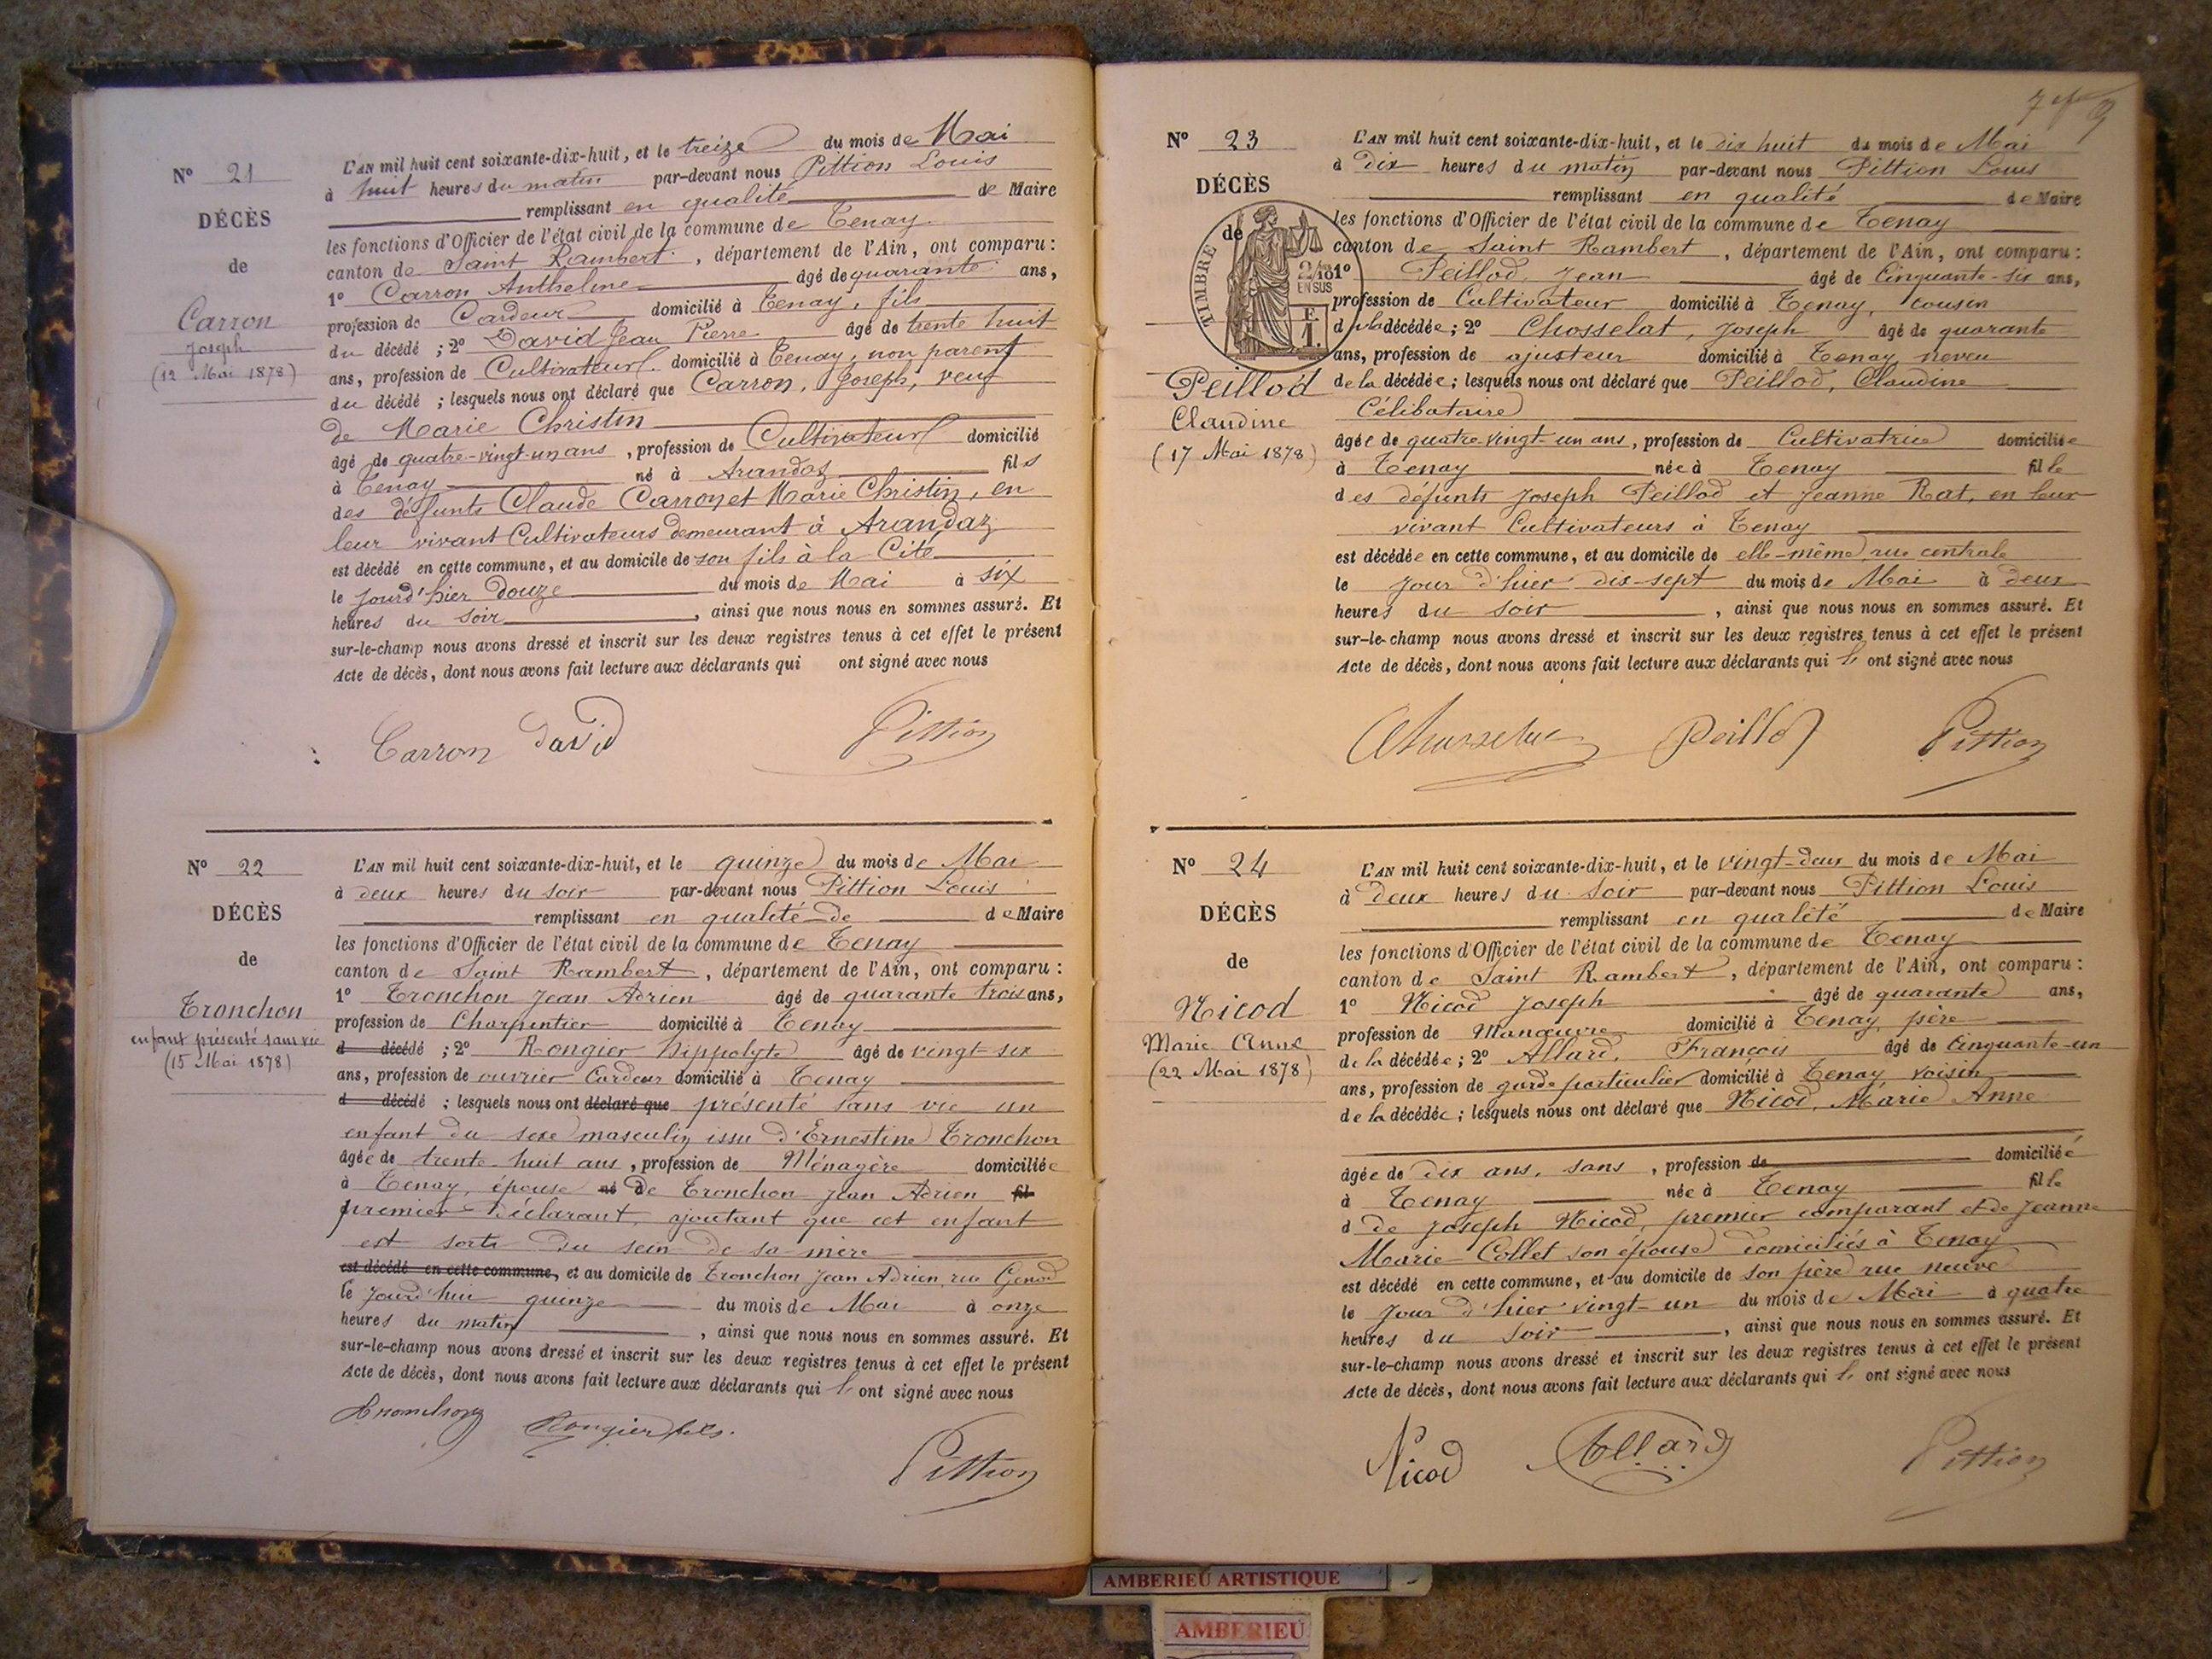 Nº 21
DÉCÈS
de
Carron
Joseph
(12 Mai 1878)
L'AN mil huit cent soixante-dix-huit, et le treize du mois de Mai
à huit heures du matin par-devant nous Pittion Louis
remplissant en qualité de Maire
les fonctions d'Officier de l'état civil de la commune de Tenay
canton de Saint Rambert, département de l'Ain, ont comparu :
1º Carron Anthelme âgé de quarante ans,
profession de Cardeur domicilié à Tenay, fils
du décédé ; 2º David Jean Pierre âgé de trente huit
ans, profession de Cultivateur domicilié à Tenay, non parent
du décédé ; lesquels nous ont déclaré que Carron, Joseph, veuf
de Marie Christin
âgé de quatre-vingt-un ans, profession de Cultivateur domicilié
à Tenay né à Arandas fils
des défunts Claude Carron et Marie Christin, en
leur vivant Cultivateurs demeurant à Arandaz
est décédé en cette commune, et au domicile de son fils à la Cité
le jourd'hier douze du mois de Mai à six
heures du soir, ainsi que nous nous en sommes assuré. Et
sur-le-champ nous avons dressé et inscrit sur les deux registres tenus à cet effet le présent
Acte de décès, dont nous avons fait lecture aux déclarants qui ont signé avec nous
Carron David Pittion
Nº 22
DÉCÈS
de
Tronchon
enfant présenté sans vie
(15 Mai 1878)
L'AN mil huit cent soixante-dix-huit, et le quinze du mois de Mai
à deux heures du soir par-devant nous Pittion Louis
remplissant en qualité de de Maire
les fonctions d'Officier de l'état civil de la commune de Tenay
canton de Saint Rambert, département de l'Ain, ont comparu :
1º Tronchon Jean Adrien âgé de quarante trois ans,
profession de Charpentier domicilié à Tenay
d décédé ; 2º Rongier Hippolyte âgé de vingt-six
ans, profession de ouvrier Cardeur domicilié à Tenay
d décédé ; lesquels nous ont déclaré que présenté sans vie un
enfant du sexe masculin issu d'Ernestine Tronchon
âgée de trente-huit ans, profession de Ménagère domiciliée
à Tenay, épouse né de Tronchon Jean Adrien fil
premier déclarant, ajoutant que cet enfant
est sorti du sein de sa mère
est décédé en cette commune, et au domicile de Tronchon Jean Adrien, rue Genod
le jourd'hui quinze du mois de Mai à onze
heures du matin, ainsi que nous nous en sommes assuré. Et
sur-le-champ nous avons dressé et inscrit sur les deux registres tenus à cet effet le présent
Acte de décès, dont nous avons fait lecture aux déclarants qui ont signé avec nous
Tronchon Rongier fils. Pittion
Nº 23
DÉCÈS
de
TIMBRE
2/10es
EN SUS
F.
1.
Peillod
Claudine
(17 Mai 1878)
L'AN mil huit cent soixante-dix-huit, et le dix huit du mois de Mai
à dix heures du matin par-devant nous Pittion Louis
remplissant en qualité de Maire
les fonctions d'Officier de l'état civil de la commune de Tenay
canton de Saint Rambert, département de l'Ain, ont comparu :
1º Peillod, Jean âgé de Cinquante-six ans,
profession de Cultivateur domicilié à Tenay, cousin
de la décédée ; 2º Chosselat, Joseph âgé de quarante
ans, profession de ajusteur domicilié à Tenay neveu
de la décédée ; lesquels nous ont déclaré que Peillod, Claudine
Célibataire
âgée de quatre-vingt-un ans, profession de Cultivatrice domiciliée
à Tenay née à Tenay fille
des défunts Joseph Peillod et Jeanne Rat, en leur
vivant Cultivateurs à Tenay
est décédée en cette commune, et au domicile de elle-même rue centrale
le jour d'hier dix-sept du mois de Mai à deux
heures du soir, ainsi que nous nous en sommes assuré. Et
sur-le-champ nous avons dressé et inscrit sur les deux registres tenus à cet effet le présent
Acte de décès, dont nous avons fait lecture aux déclarants qui ont signé avec nous
Peillod Pittion
Nº 24
DÉCÈS
de
Nicod
Marie Anne
(22 Mai 1878)
L'AN mil huit cent soixante-dix-huit, et le vingt-deux du mois de Mai
à deux heures du soir par-devant nous Pittion Louis
remplissant en qualité de Maire
les fonctions d'Officier de l'état civil de la commune de Tenay
canton de Saint Rambert, département de l'Ain, ont comparu :
1º Nicod Joseph âgé de quarante ans,
profession de Manœuvre domicilié à Tenay, père
de la décédée ; 2º Allard, François âgé de Cinquante-un
ans, profession de garde particulier domicilié à Tenay voisin
de la décédée ; lesquels nous ont déclaré que Nicod, Marie Anne
âgée de dix ans, sans, profession de domiciliée
à Tenay née à Tenay fille
d de Joseph Nicod, premier comparant et de Jeanne
Marie Collet son épouse domiciliés à Tenay
est décédé en cette commune, et au domicile de son père rue neuve
le jour d'hier vingt-un du mois de Mai à quatre
heures du soir, ainsi que nous nous en sommes assuré. Et
sur-le-champ nous avons dressé et inscrit sur les deux registres tenus à cet effet le présent
Acte de décès, dont nous avons fait lecture aux déclarants qui ont signé avec nous
Nicod Allard Pittion
AMBERIEU ARTISTIQUE
AMBERIEU